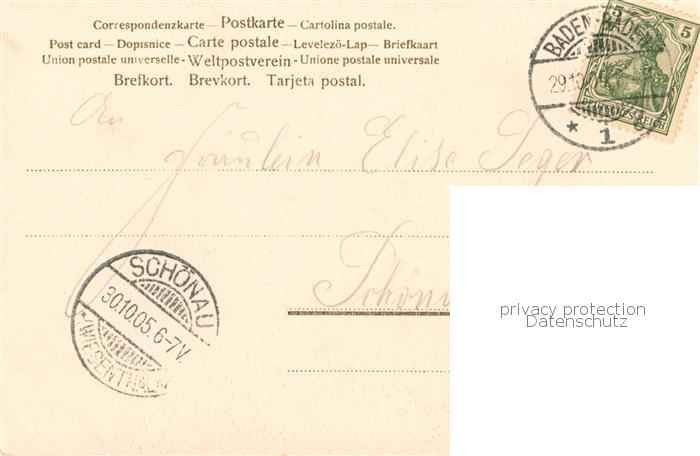 Correspondenzkarte — Postkarte — Cartolina postale.
Post card — Dopisnice — Carte postale — Levelező-Lap — Briefkaart
Union postale universelle - Weltpostverein - Unione postale universale
Brefkort. Brevkort. Tarjeta postal.
An
Fräulein Elise Seger
Schönau
BADEN-BADEN
29.10.
* 1
5
DEUTSCHES REICH
SCHÖNAU
30.10.05.6-7V.
(WIESENTHAL)
privacy protection
Datenschutz